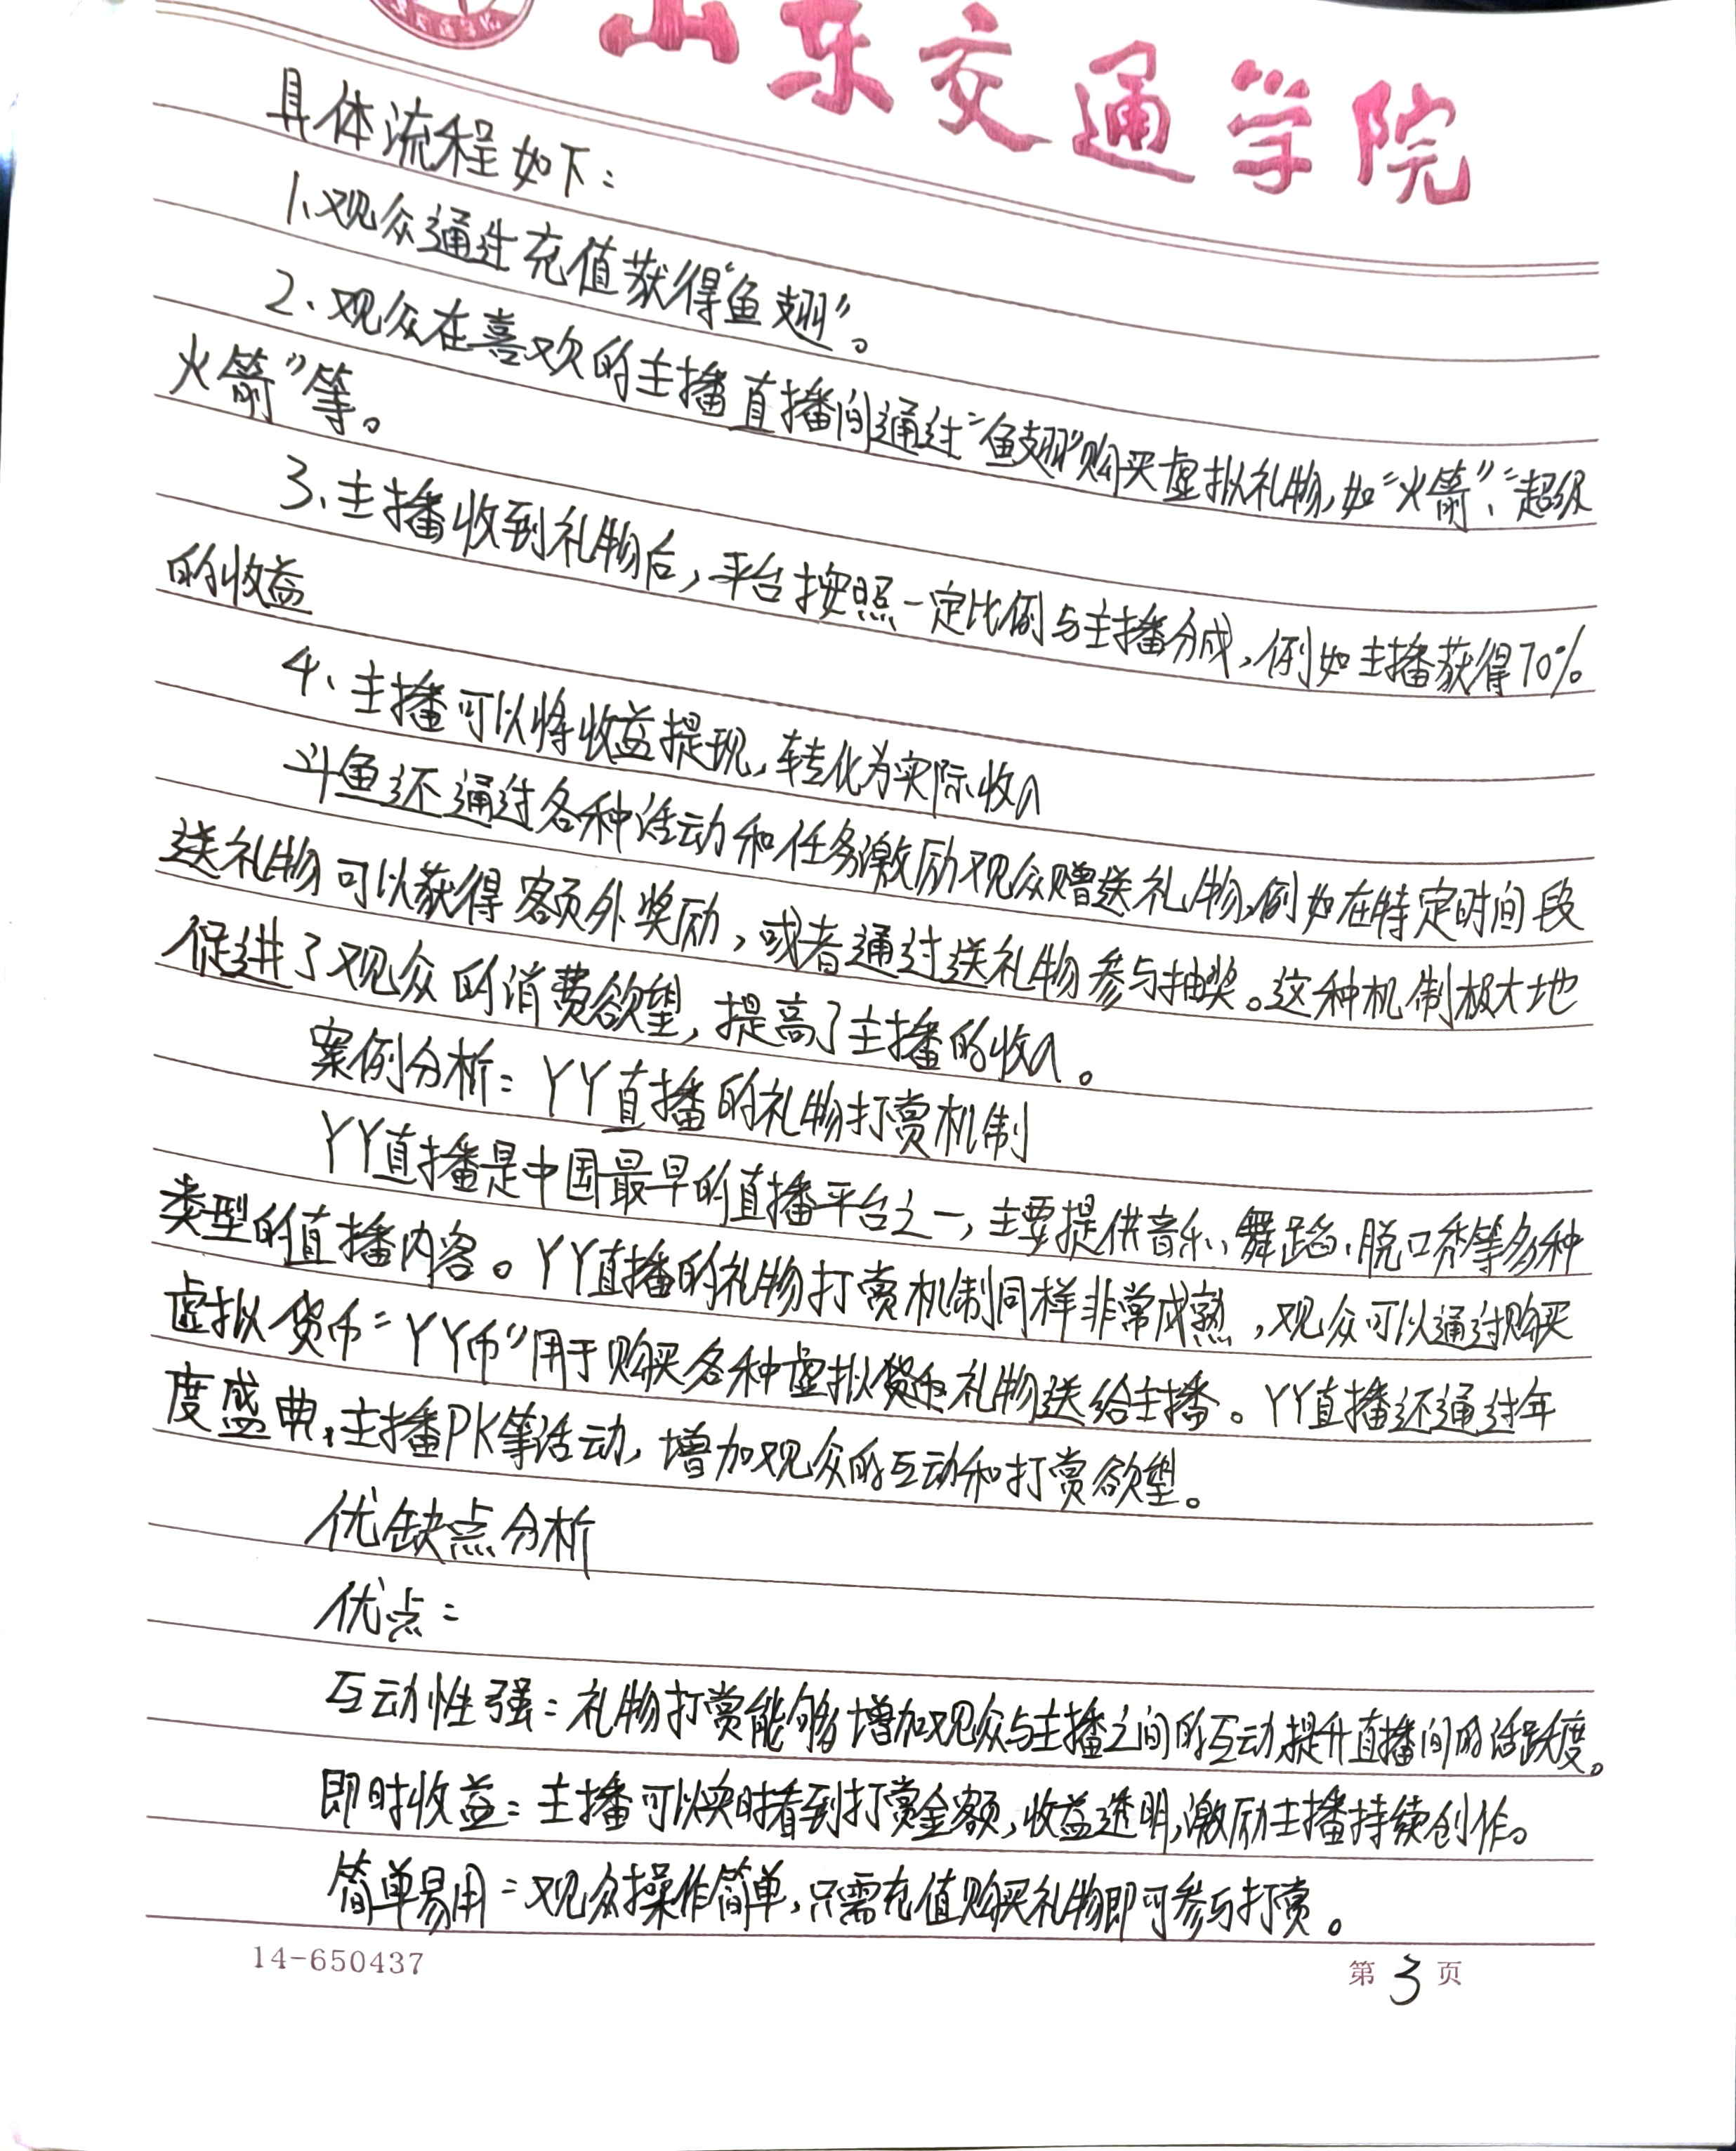 山东交通学院
具体流程如下：
1、观众通过充值获得“鱼翅”。
2、观众在喜欢的主播直播间通过“鱼翅”购买虚拟礼物，如“火箭”、“超级
火箭”等。
3、主播收到礼物后，平台按照一定比例与主播分成，例如主播获得70%
的收益
4、主播可以将收益提现，转化为实际收入
斗鱼还通过各种活动和任务激励观众赠送礼物，例如在特定时间段
送礼物可以获得额外奖励，或者通过送礼物参与抽奖。这种机制极大地
促进了观众的消费欲望，提高了主播的收入。
案例分析：YY直播的礼物打赏机制
YY直播是中国最早的直播平台之一，主要提供音乐、舞蹈、脱口秀等多种
类型的直播内容。YY直播的礼物打赏机制同样非常成熟，观众可以通过购买
虚拟货币“YY币”用于购买各种虚拟礼物送给主播。YY直播还通过年
度盛典、主播PK等活动，增加观众的互动和打赏欲望。
优缺点分析
优点：
互动性强：礼物打赏能够增加观众与主播之间的互动，提升直播间的活跃度。
即时收益：主播可以实时看到打赏金额，收益透明，激励主播持续创作。
简单易用：观众操作简单，只需充值购买礼物即可参与打赏。
14-650437
第3页